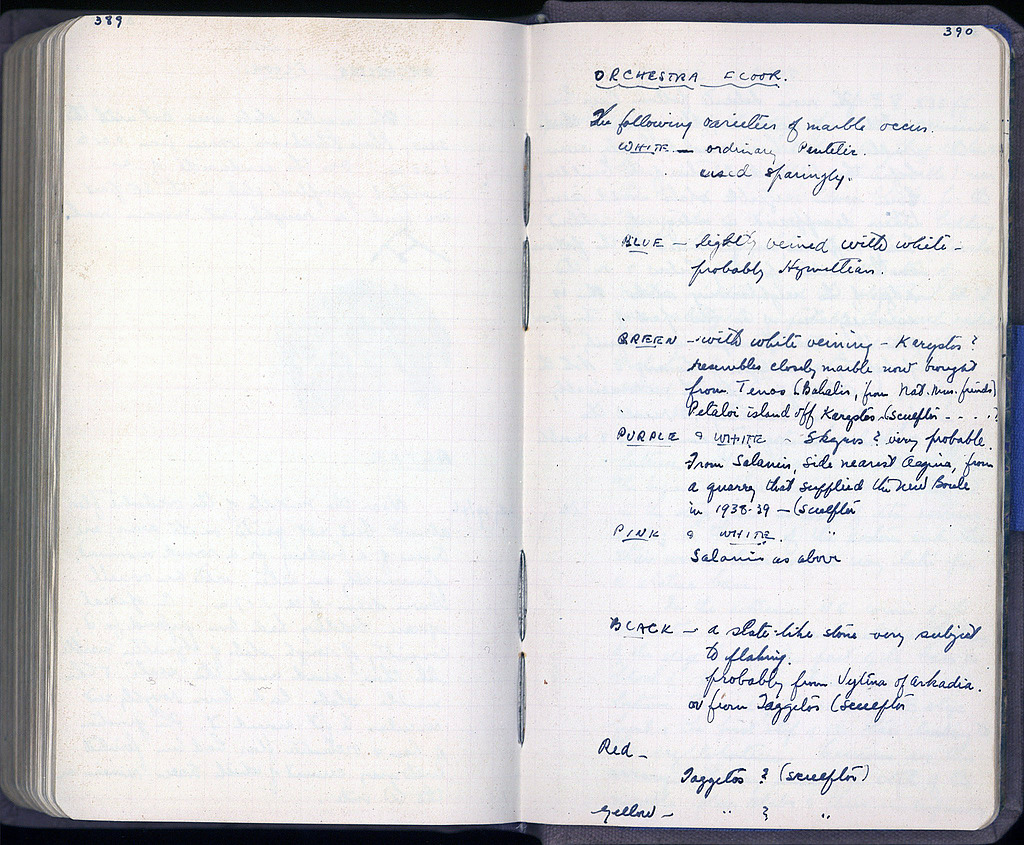 389
390
ORCHESTRA FLOOR.
The following varieties of marble occur.
WHITE — ordinary Pentelic.
used sparingly.
BLUE — lightly veined with white —
probably Hymettian.
GREEN — with white veining — Karystos ?
resembles closely marble now brought
from Tenos (Bakalis, from Nat. Mus. friends)
Petaloi island off Karystos (sculptor - - . . ?
PURPLE & WHITE - Skyros ? very probable.
From Salamis, side nearest Aegina, from
a quarry that supplied the new Boule
in 1938-39 — (sculptor
PINK & WHITE. "
Salamis as above
BLACK — a slate-like stone very subject
to flaking.
probably from Vytina of Arkadia.
or from Taygetos (sculptor
Red —
Taygetos ? (sculptor)
Yellow — " ? "